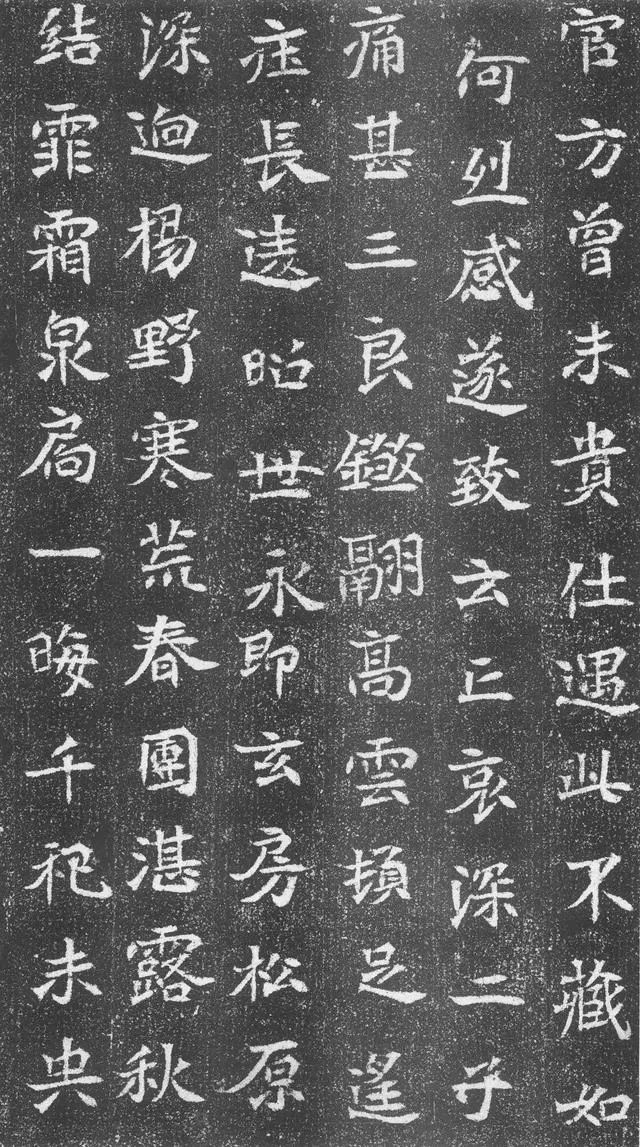 官方曾未貴仕遇此不藏如
何烈感遂致云亡哀深二子
痛甚三良鎩翮高雲頓足遥
庄長違昭世永即玄房松原
深迥楊野寒荒春團湛露秋
結霏霜泉扃一晦千祀未央